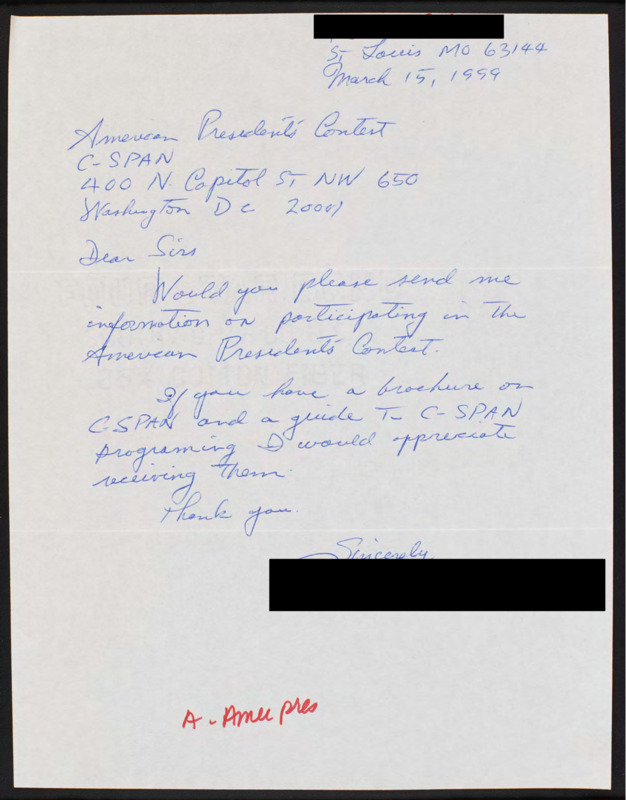 St Louis MO 63144
March 15, 1999
American Presidents Contest
C-SPAN
400 N. Capitol St NW 650
Washington DC 20001
Dear Sirs
Would you please send me
information on participating in the
American Presidents Contest.
If you have a brochure on
C-SPAN and a guide to C-SPAN
programing I would appreciate
receiving them.
Thank you.
Sincerely
A - Amer pres